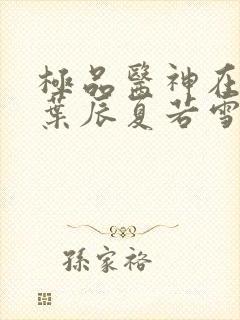 極品醫神在
葉辰夏若雪
孫家裕